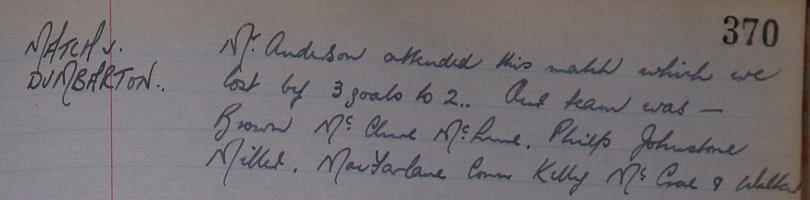 370
MATCH v. Mr. Anderson attended this match which we
DUMBARTON.. lost by 3 goals to 2.. Our team was —
Brown McClure McLune. Philp Johnstone
Miller. MacFarlane Conn Kelly McCrae & Walker